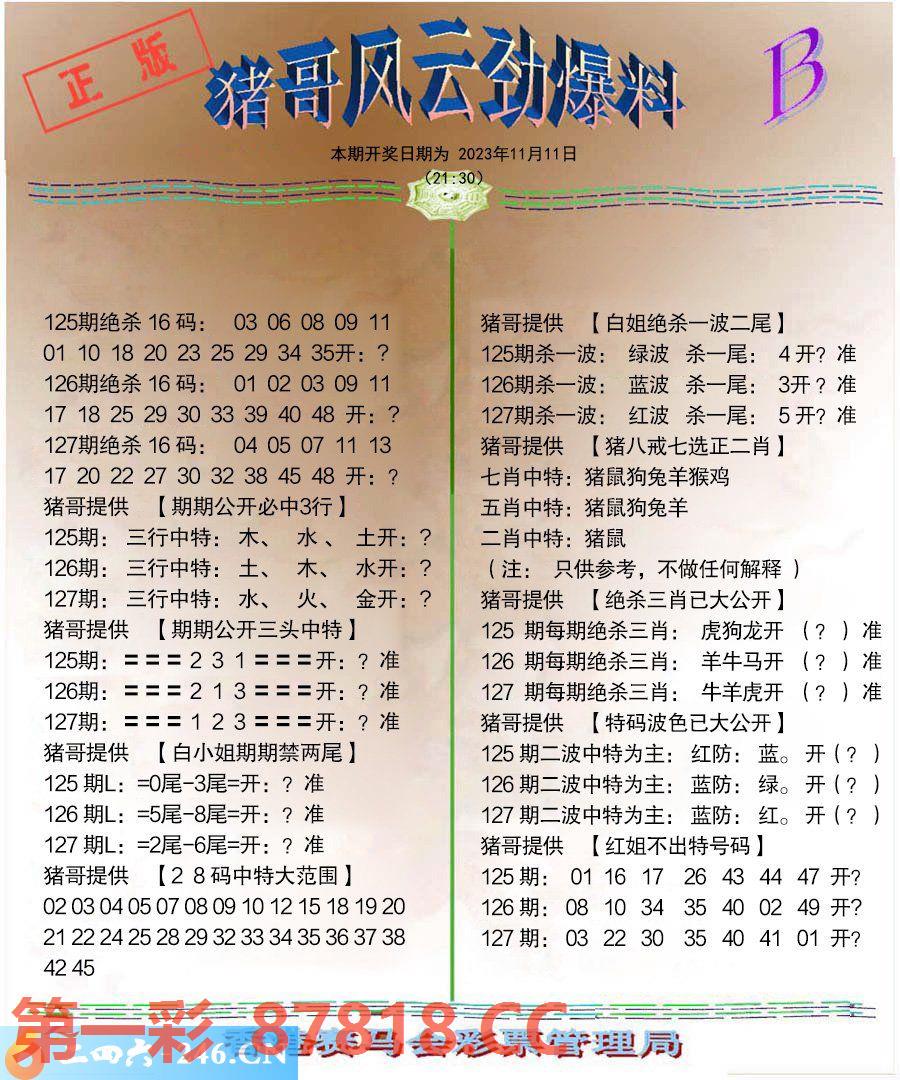 正版
猪哥风云劲爆料
B
本期开奖日期为 2023年11月11日
(21:30)
125期绝杀 16 码: 03 06 08 09 11
01 10 18 20 23 25 29 34 35开: ?
126期绝杀 16 码: 01 02 03 09 11
17 18 25 29 30 33 39 40 48 开: ?
127期绝杀 16 码: 04 05 07 11 13
17 20 22 27 30 32 38 45 48 开: ?
猪哥提供 【期期公开必中3行】
125期: 三行中特: 木、 水、 土开: ?
126期: 三行中特: 土、 木、 水开: ?
127期: 三行中特: 水、 火、 金开: ?
猪哥提供 【期期公开三头中特】
125期: === 2 3 1 ===开: ? 准
126期: === 2 1 3 ===开: ? 准
127期: === 1 2 3 ===开: ? 准
猪哥提供 【白小姐期期禁两尾】
125 期L: =0尾-3尾=开: ? 准
126 期L: =5尾-8尾=开: ? 准
127 期L: =2尾-6尾=开: ? 准
猪哥提供 【2 8 码中特大范围】
02 03 04 05 07 08 09 10 12 15 18 19 20
21 22 24 25 28 29 32 33 34 35 36 37 38
42 45
猪哥提供 【白姐绝杀一波二尾】
125期杀一波: 绿波 杀一尾: 4 开? 准
126期杀一波: 蓝波 杀一尾: 3开 ? 准
127期杀一波: 红波 杀一尾: 5 开? 准
猪哥提供 【猪八戒七选正二肖】
七肖中特: 猪鼠狗兔羊猴鸡
五肖中特: 猪鼠狗兔羊
二肖中特: 猪鼠
(注: 只供参考, 不做任何解释 )
猪哥提供 【绝杀三肖已大公开】
125 期每期绝杀三肖: 虎狗龙开 (? ) 准
126 期每期绝杀三肖: 羊牛马开 (? ) 准
127 期每期绝杀三肖: 牛羊虎开 (? ) 准
猪哥提供 【特码波色已大公开】
125 期二波中特为主: 红防: 蓝。开 (? )
126 期二波中特为主: 蓝防: 绿。开 (? )
127 期二波中特为主: 蓝防: 红。开 (? )
猪哥提供 【红姐不出特号码】
125 期: 01 16 17 26 43 44 47 开?
126 期: 08 10 34 35 40 02 49 开?
127 期: 03 22 30 35 40 41 01 开?
第一彩 87818.CC
二四六 246.CN
香港赛马会彩票管理局